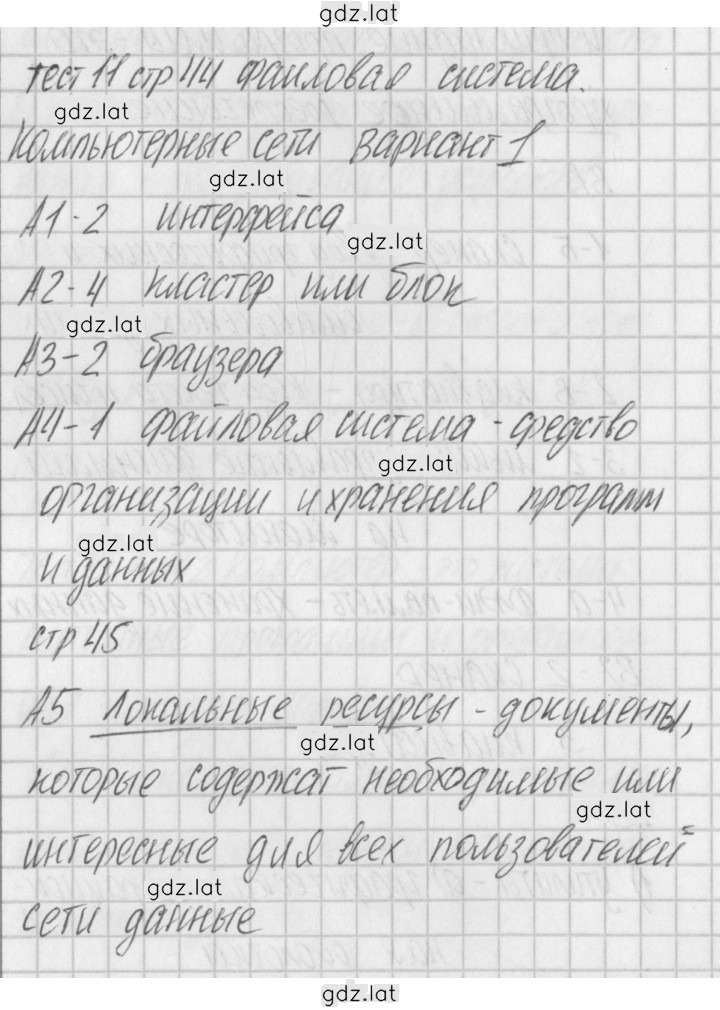 gdz.lat
тест 11 стр 44 Файловая система.
gdz.lat
Компьютерные сети Вариант 1
gdz.lat
А1-2 интерфейса
gdz.lat
А2-4 кластер или блок
gdz.lat
А3-2 браузера
А4-1 файловая система - средство
gdz.lat
организации и хранения программ
gdz.lat
и данных
стр 45
А5 Локальные ресурсы - документы,
gdz.lat
которые содержат необходимые или
gdz.lat
интересные для всех пользователей
gdz.lat
сети данные
gdz.lat